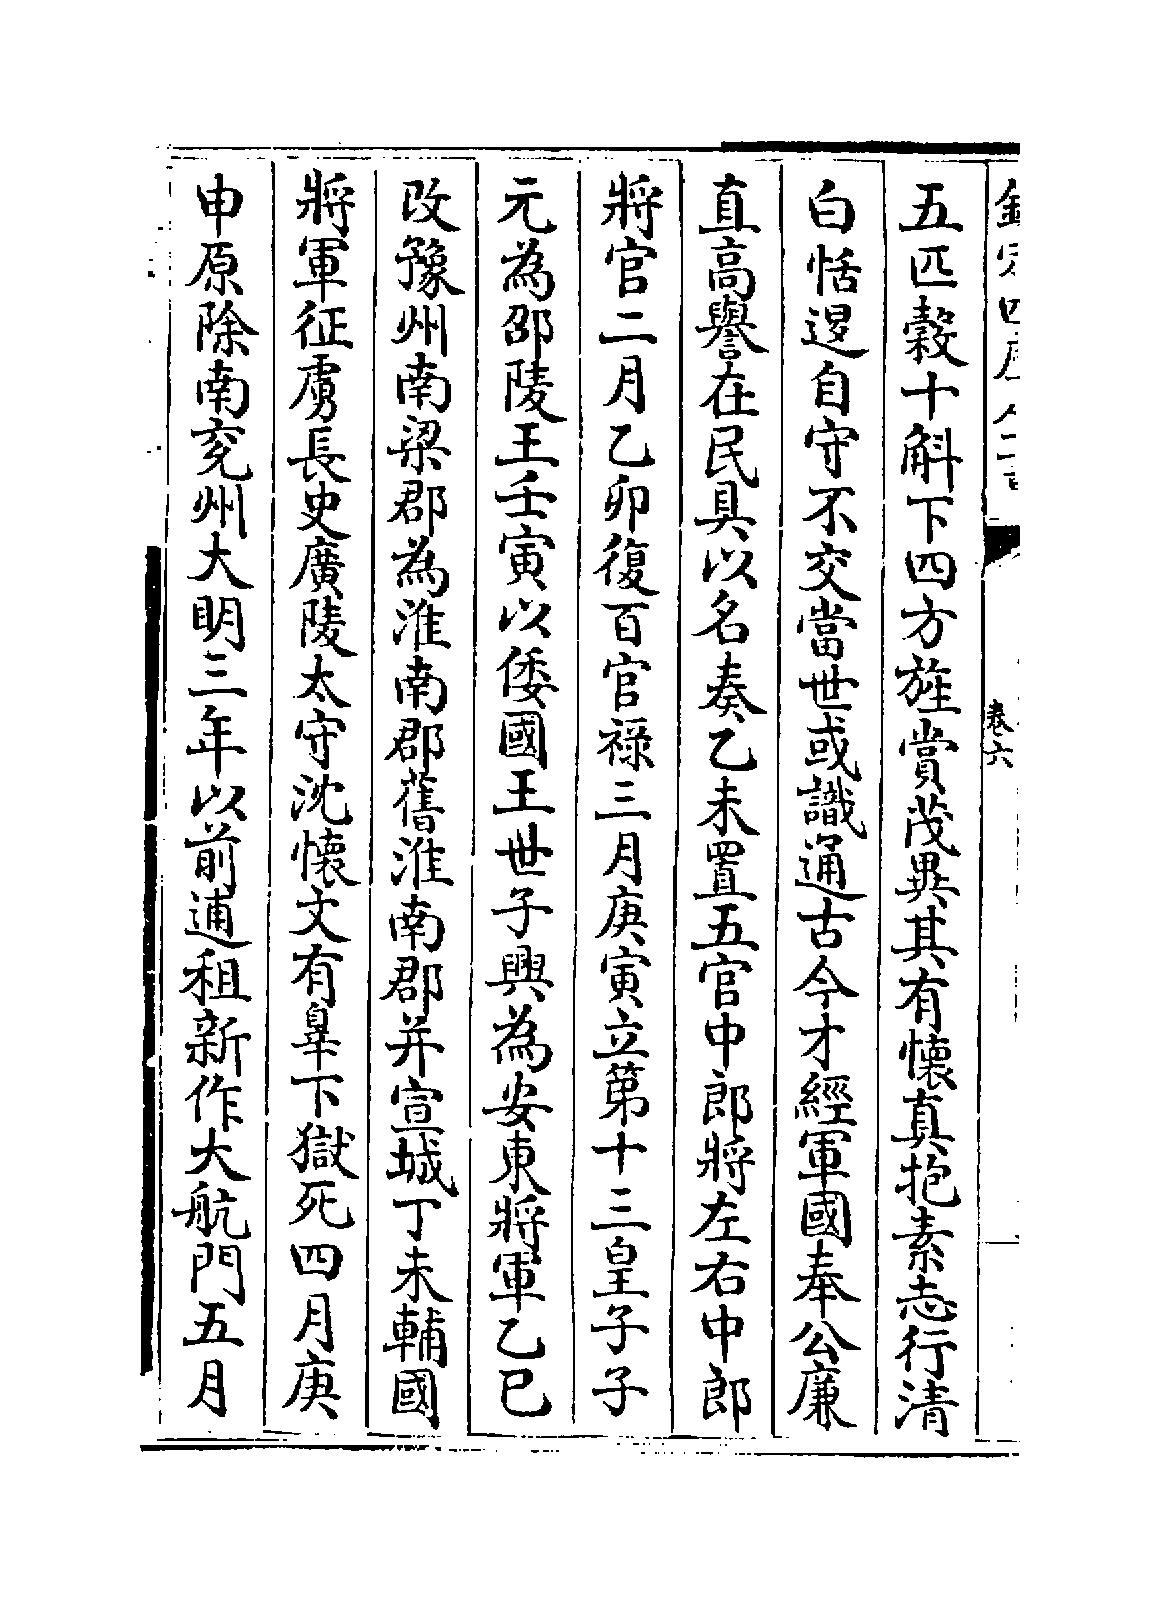 五匹穀十斛下四方旌賞茂異其有懐真抱素志行清
白恬退自守不交當世或識通古今才經軍國奉公廉
直高譽在民具以名奏乙未置五官中郎將左右中郎
將官二月乙卯復百官祿三月庚寅立第十三皇子子
元為邵陵王壬寅以倭國王世子興為安東將軍乙巳
改豫州南梁郡為淮南郡舊淮南郡并宣城丁未輔國
將軍征虜長史廣陵太守沈懐文有辠下獄死四月庚
申原除南兗州大明三年以前逋租新作大航門五月
卷六